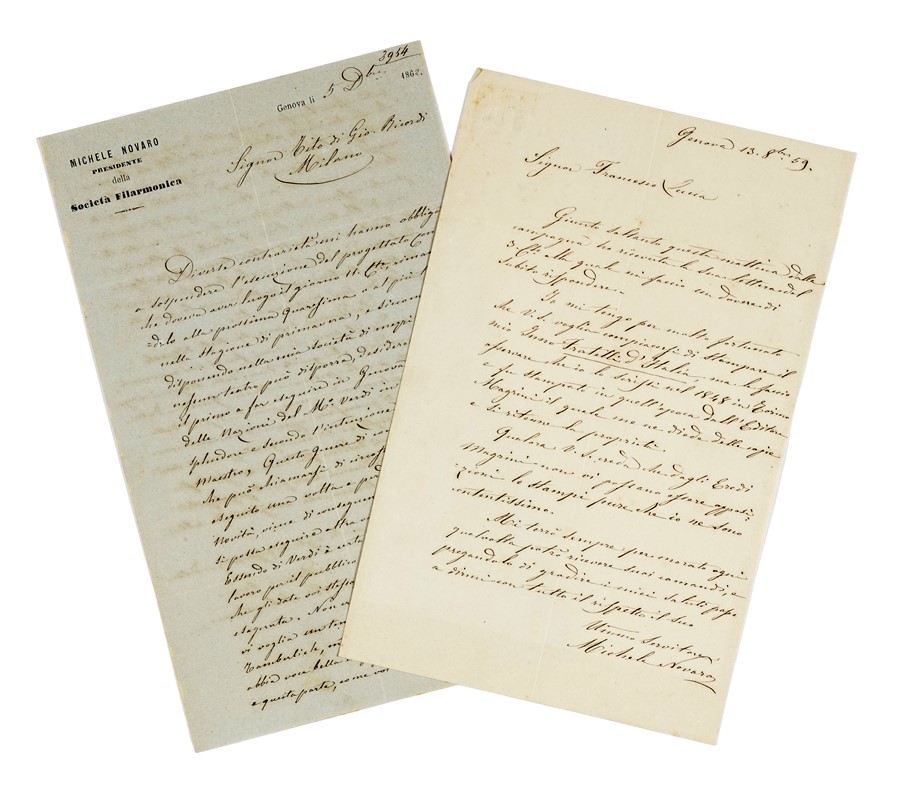 3954
Genova li 5 Dbre 1862.
MICHELE NOVARO
PRESIDENTE
della
Società Filarmonica
Signor Tito di Gio. Ricordi
Milano
Diverse contrarietà mi hanno obbliga
a sospendere l'esecuzione del progettato con
che dovea aver luogo il giorno 11 Cte,
alla prossima Quaresima o al più
nella Stagione di primavera, e
disponendo nella mia Società di
nessun teatro può disporre,
il primo a far eseguire in Genova
delle Nazioni del Mo. Verdi in
splendore e secondo l'
Maestro, Questo genere di
che può chiamarsi di
eseguito una volta e
Novità, viene di
si possa eseguire altra
Essendo di Verdi è
lavoro per il pubblico
che gli date voi stesso
esagerata. Non
vi voglia un
Tamberlick,
abbia voce bella
e questa parte, come
Genova 13. 8bre 59.
Signor Francesco Lucca
Giunto soltanto questa mattina dalla
campagna ho ricevuto la sua lettera del
3. Ct. Alla quale mi faccio un dovere di
subito rispondere.
Io mi tengo per molto fortunato
che V.S. voglia compiacersi di stampare il
mio Inno Fratelli d'Italia ma le faccio
osservare che io lo scrissi nel 1848 in Torino
e fu stampato in quell'epoca dall'Editore
Magrini il quale me ne diede delle copie
e si ritenne la proprietà.
Qualora V.S. creda che dagli Eredi
Magrini non vi possano essere opposi-
zioni lo stampi pure che io ne sono
contentissimo.
Mi terrò sempre per onorato ogni
qualvolta potrò ricevere suoi comandi, e
pregandola di gradire i miei saluti passo
a dirmi con tutto il rispetto il Suo
Ummo Servitore
Michele Novaro